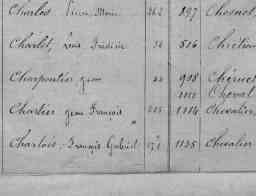 Charlot Pierre Marie 262 897 Chesnot,
Charlet, Louis Frédéric 36 516 Chrétien
Charpentier Jean 908 Chéruet
1112 Cheval
Chartier Jean François 1114 Chevalier,
Charlois, François Gabriel 1135 Chevalier